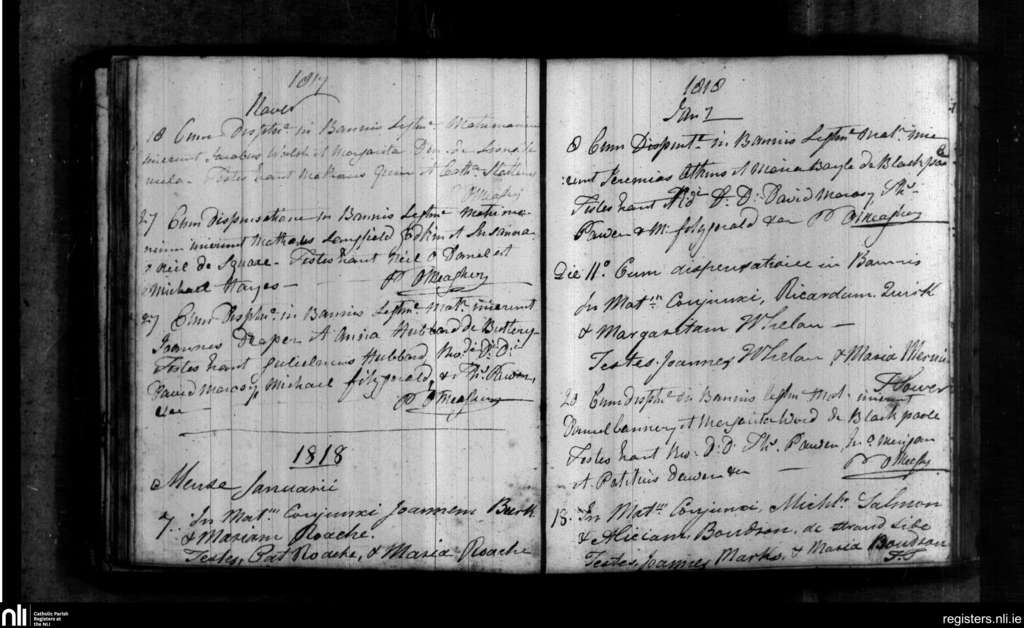 1817
Nover
18 Cum Dispt. in Bannis Legtm. Matrimonium
inierunt Jacobus Walsh et Margarita
Testes erant Mathaus Quin et Cath.
P OMeagher
27 Cum Dispensatione in Bannis Legtm. Matrimo
nium inierunt Mathaus Longfield et Susanna
O Neil de Square. Testes erant Neil O Daniel et
Michael Hayes —
P OMeagher
27 Cum Dispt. in Bannis Legtm. Matr. inierunt
Joannes Draper et Anna Hubbard de Buttery
Testes erant Gulielmus Hubbard, D: D:
David Michael fitzgerald, & Ths. Pawer,
&er —
P OMeagher
1818
Mense Januarii
7. In Matm. Conjunxi Joannem Burk
& Mariam Roache.
Testes, Pat Roache, & Maria Roache
1818
Jan
8 Cum Dispent. in Bannis Legtm. Matr. inie
runt Jeremias Atkins et Maria Bayle de Blackpool
Testes erant D: D: David Ths.
Pawer & M. fitzgerald &er P OMeagher
Die 11o. Cum dispensatione in Bannis
In Matm. Conjunxi, Ricardum Quirk
& Margaritam Whelan —
Testes, Joannes Whelan & Maria
20 Cum Dispt. in Bannis legtm Mat. inierunt
et Margarita Word de Black poole
Testes erant D: D: Ths. Pawer,
et Patritius &er —
P OMeagher
18. In Matm. Conjunxi, Michlm. Salmon
& Aliciam, Boudron, de
Testes, Joannes Marks, & Maria Boudron
nli
Catholic Parish
Registers at
the NLI
registers.nli.ie